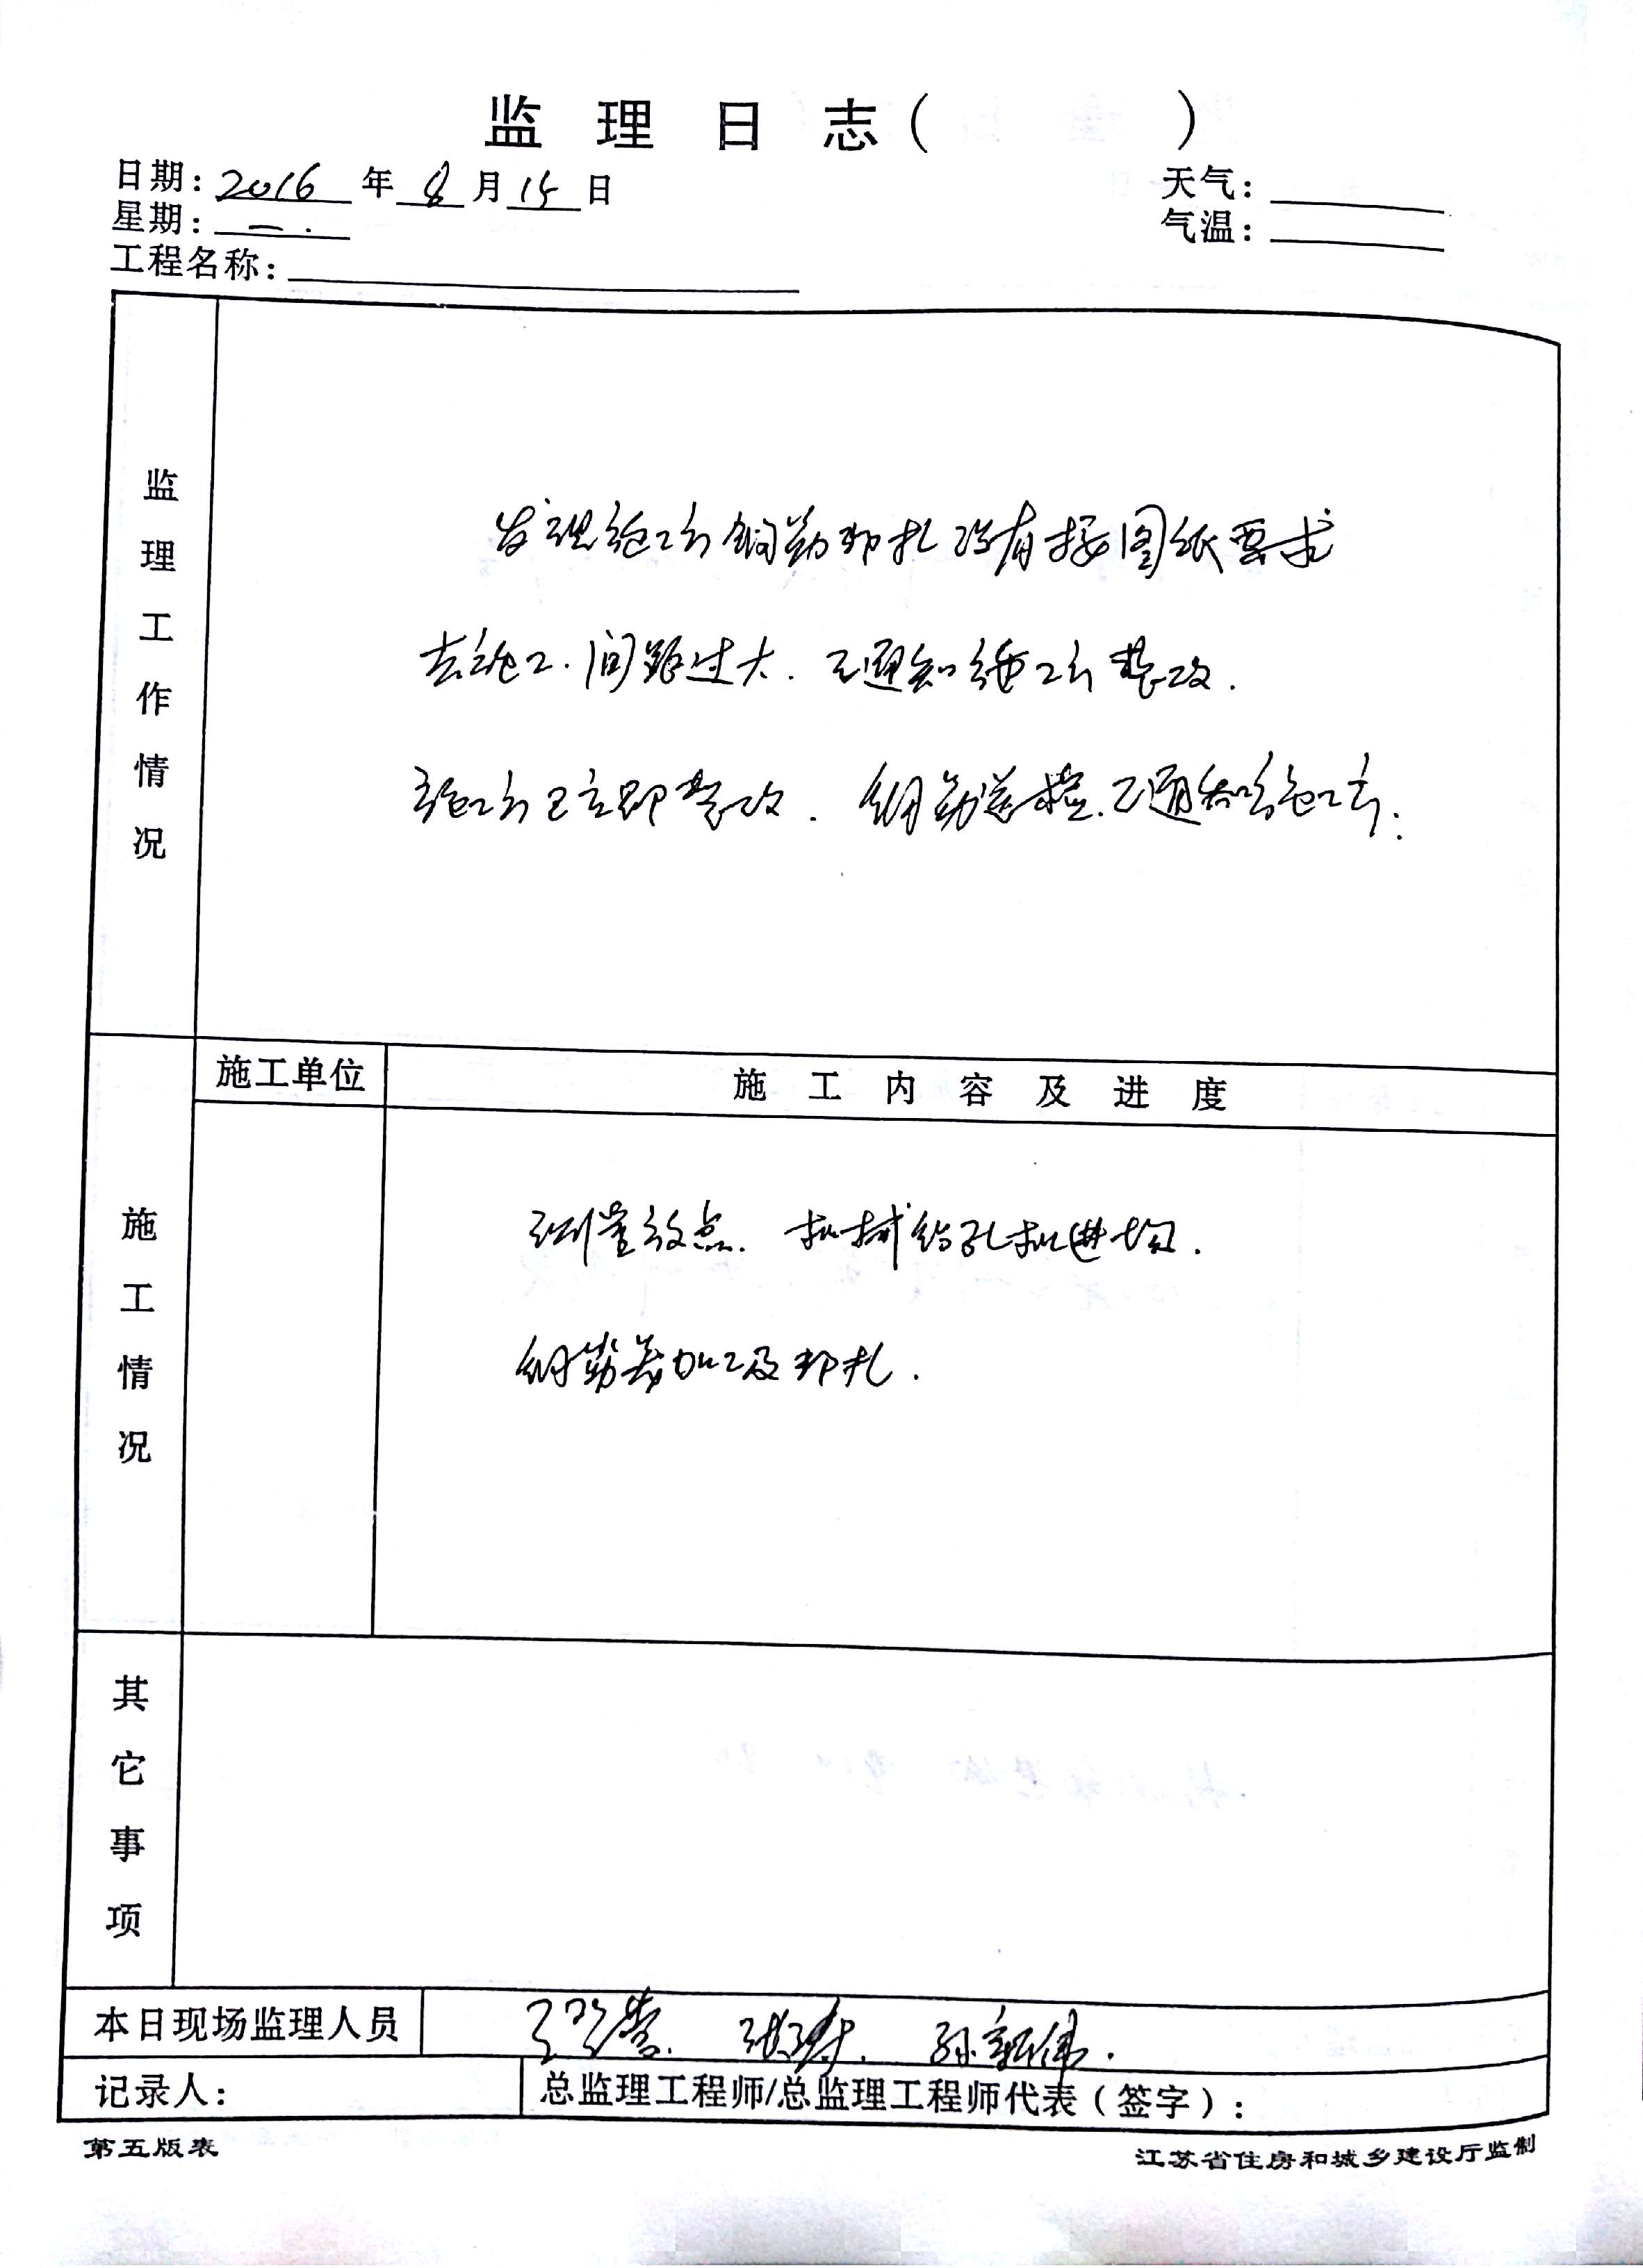 监理日志（ ）
日期：2016年8月15日
天气：
星期：一.
气温：
工程名称：
监理工作情况
发现施工方钢筋邦扎没有按图纸要求
去施工.间距过大.已通知施工方整改.
施工方已立即整改.钢筋送检.已通知施工方.
施工单位
施工内容及进度
施工情况
测量放点.机械钻孔机进场.
钢筋笼加工及邦扎.
其它事项
本日现场监理人员
孙新伟.
记录人：
总监理工程师/总监理工程师代表（签字）：
第五版表
江苏省住房和城乡建设厅监制